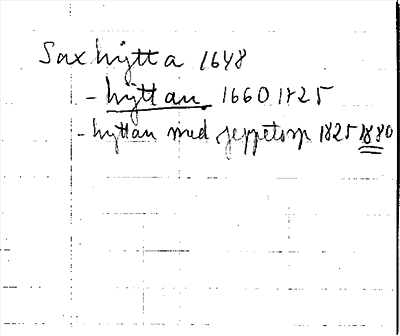 Saxhytta 1648
- hyttan 1660, 1725
- hyttan med Jeppetorp 1825 1880